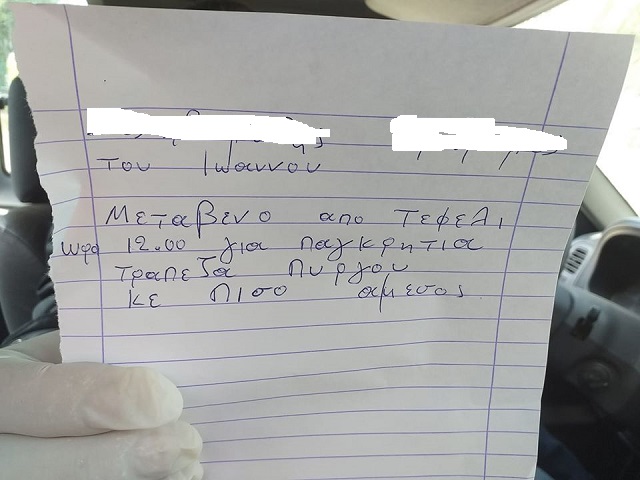 του Ιωαννου
Μεταβενο απο Τεφελι
ωρα 12.00 για παγκρητια
τραπεζα Πυργου
κε πισο αμεσος